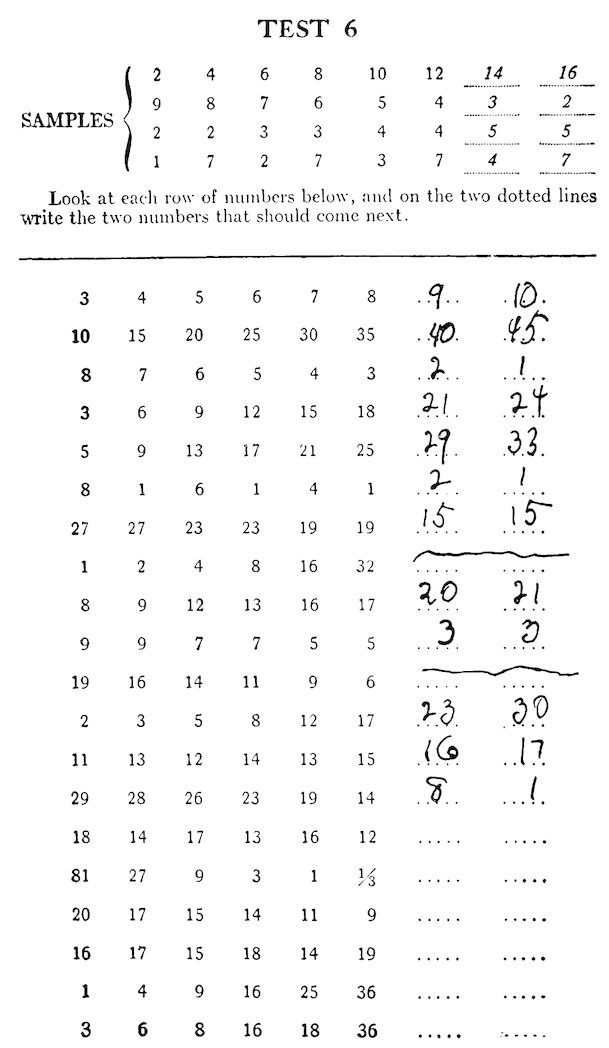 TEST 6
2 4 6 8 10 12 14 16
9 8 7 6 5 4 3 2
SAMPLES
2 2 3 3 4 4 5 5
1 7 2 7 3 7 4 7
Look at each row of numbers below, and on the two dotted lines
write the two numbers that should come next.
3 4 5 6 7 8 9 10
10 15 20 25 30 35 40 45
8 7 6 5 4 3 2 1
3 6 9 12 15 18 21 24
5 9 13 17 21 25 29 33
8 1 6 1 4 1 2 1
27 27 23 23 19 19 15 15
1 2 4 8 16 32
8 9 12 13 16 17 20 21
9 9 7 7 5 5 3 3
19 16 14 11 9 6
2 3 5 8 12 17 23 30
11 13 12 14 13 15 16 17
29 28 26 23 19 14 8 1
18 14 17 13 16 12
81 27 9 3 1 1/3
20 17 15 14 11 9
16 17 15 18 14 19
1 4 9 16 25 36
3 6 8 16 18 36